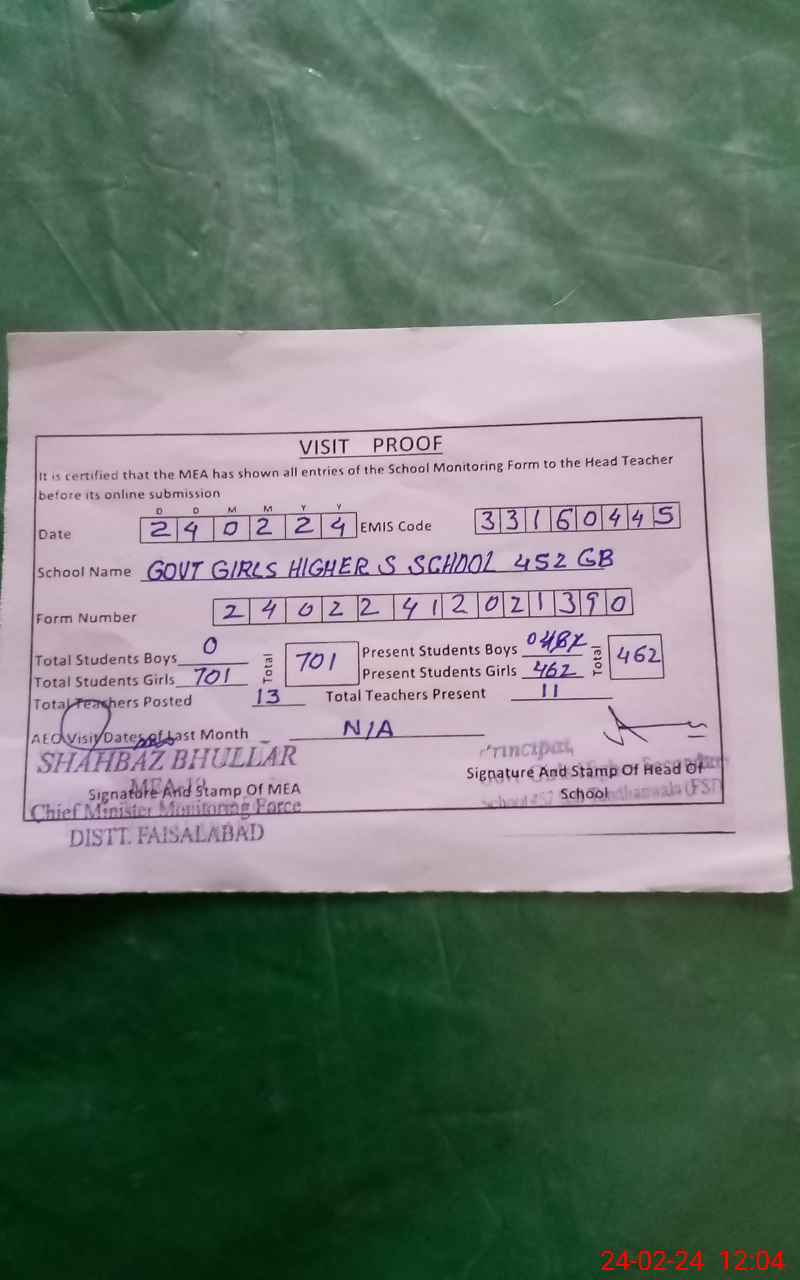 VISIT PROOF
It is certified that the MEA has shown all entries of the School Monitoring Form to the Head Teacher
before its online submission
D D M M Y Y
Date 2 4 0 2 2 4 EMIS Code 3 3 1 6 0 4 4 5
School Name GOVT GIRLS HIGHER S SCHOOL 452 GB
Form Number 2 4 0 2 2 4 1 2 0 2 1 3 9 0
Total Students Boys 0 Total 701 Present Students Boys 0 Total 462
Total Students Girls 701 Present Students Girls 462
Total Teachers Posted 13 Total Teachers Present 11
AEO Visit Dates of Last Month N/A
SHAHBAZ BHULLAR
Principal,
Signature And Stamp Of MEA
Signature And Stamp Of Head Of
School
Chief Minister Monitoring Force
DISTT. FAISALABAD
24-02-24 12:04